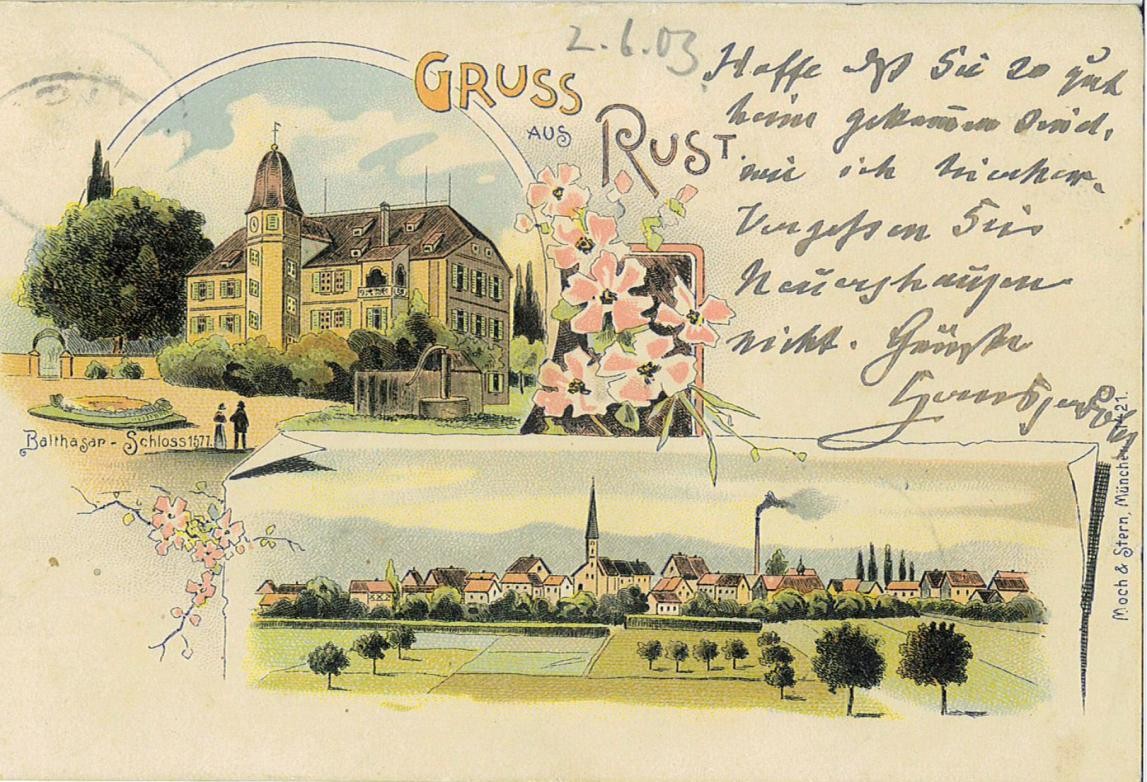 2.6.03
GRUSS
AUS
RUST
Hoffe daß Sie so gut
heim gekommen sind,
wie ich hierher.
Vergessen Sie
Neuershausen
nicht. Grüße
Balthasar - Schloss 1577.
Moch & Stern, München